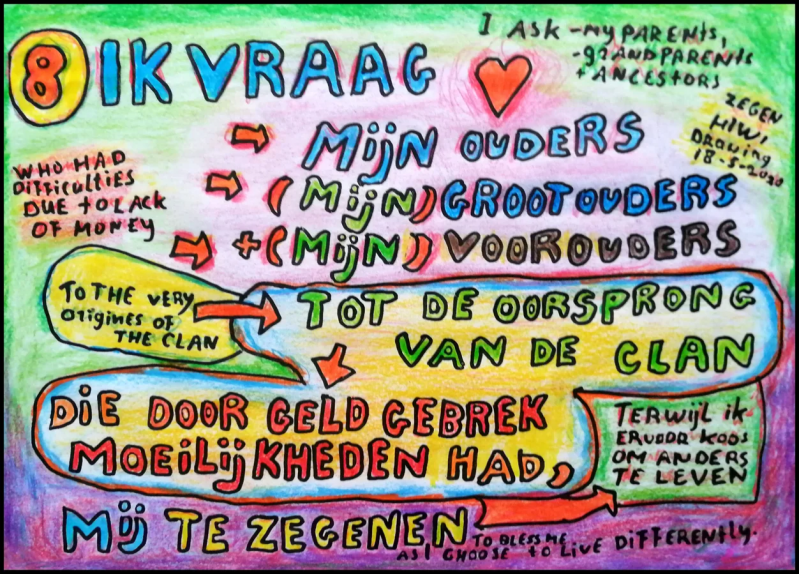 8 IK VRAAG
I ASK - MY PARENTS,
- gRANDPARENTS
+ ANCESTORS
ZEGEN
HIWI
DRAWING
18-5-2020
MijN OUDERS
WHO HAD
DiffiCULTIES
DUE TO LACK
OF MONEY
(MijN) GROOTOUDERS
+ (MijN) VOOROUDERS
TO THE VERY
ORigiNES OF
THE CLAN
TOT DE OORSPRONG
VAN DE CLAN
DiE DOOR GELD GEBREK
MOEiLijKHEDEN HAD,
TERWijL ik
ERVOOR KOOS
OM ANDERS
TE LEVEN
Mij TE ZEGENEN
TO BLESS ME
AS I CHOOSE TO LIVE DIFFERENTLY.